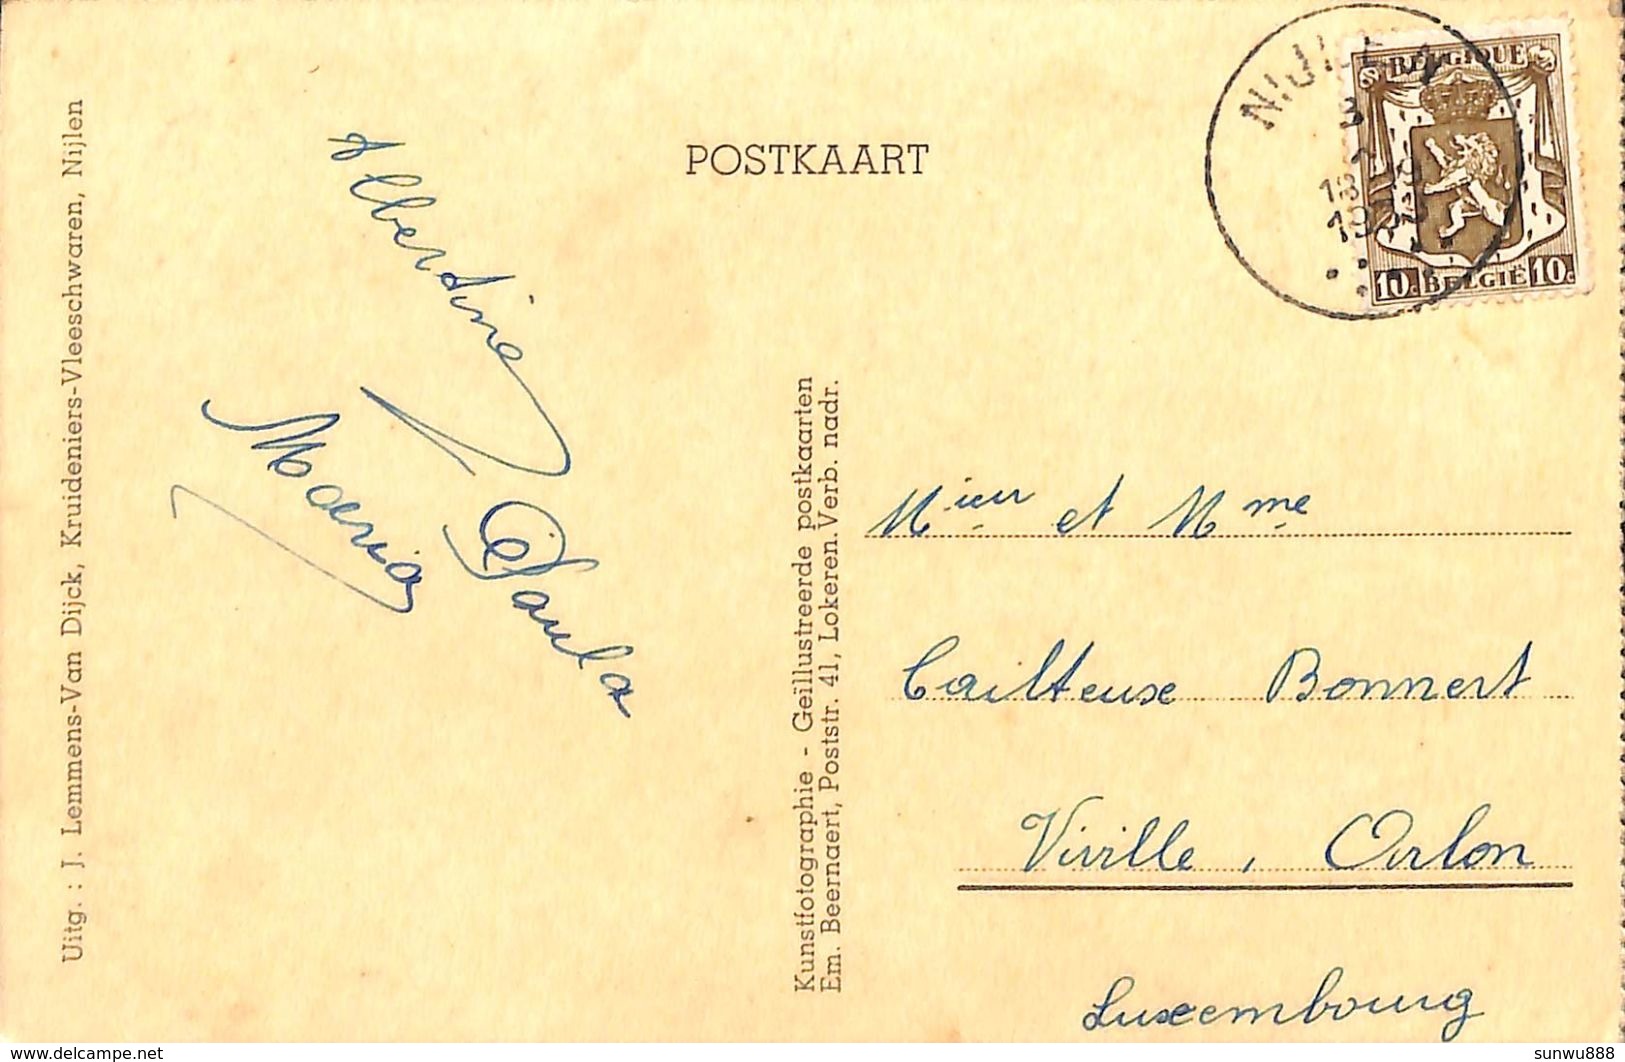 Uitg. : J. Lemmens-Van Dijck, Kruideniers-Vleeschwaren, Nijlen
Albertine
Maria
Paula
POSTKAART
Kunstfotographie - Geïllustreerde postkaarten
Em. Beernaert, Poststr. 41, Lokeren. Verb. nadr.
NIJLEN
BELGIQUE
10c BELGIË 10c
Mieur et Mme
Cailteuse Bonnert
Viville, Arlon
Luxembourg
delcampe.net
sunwu888